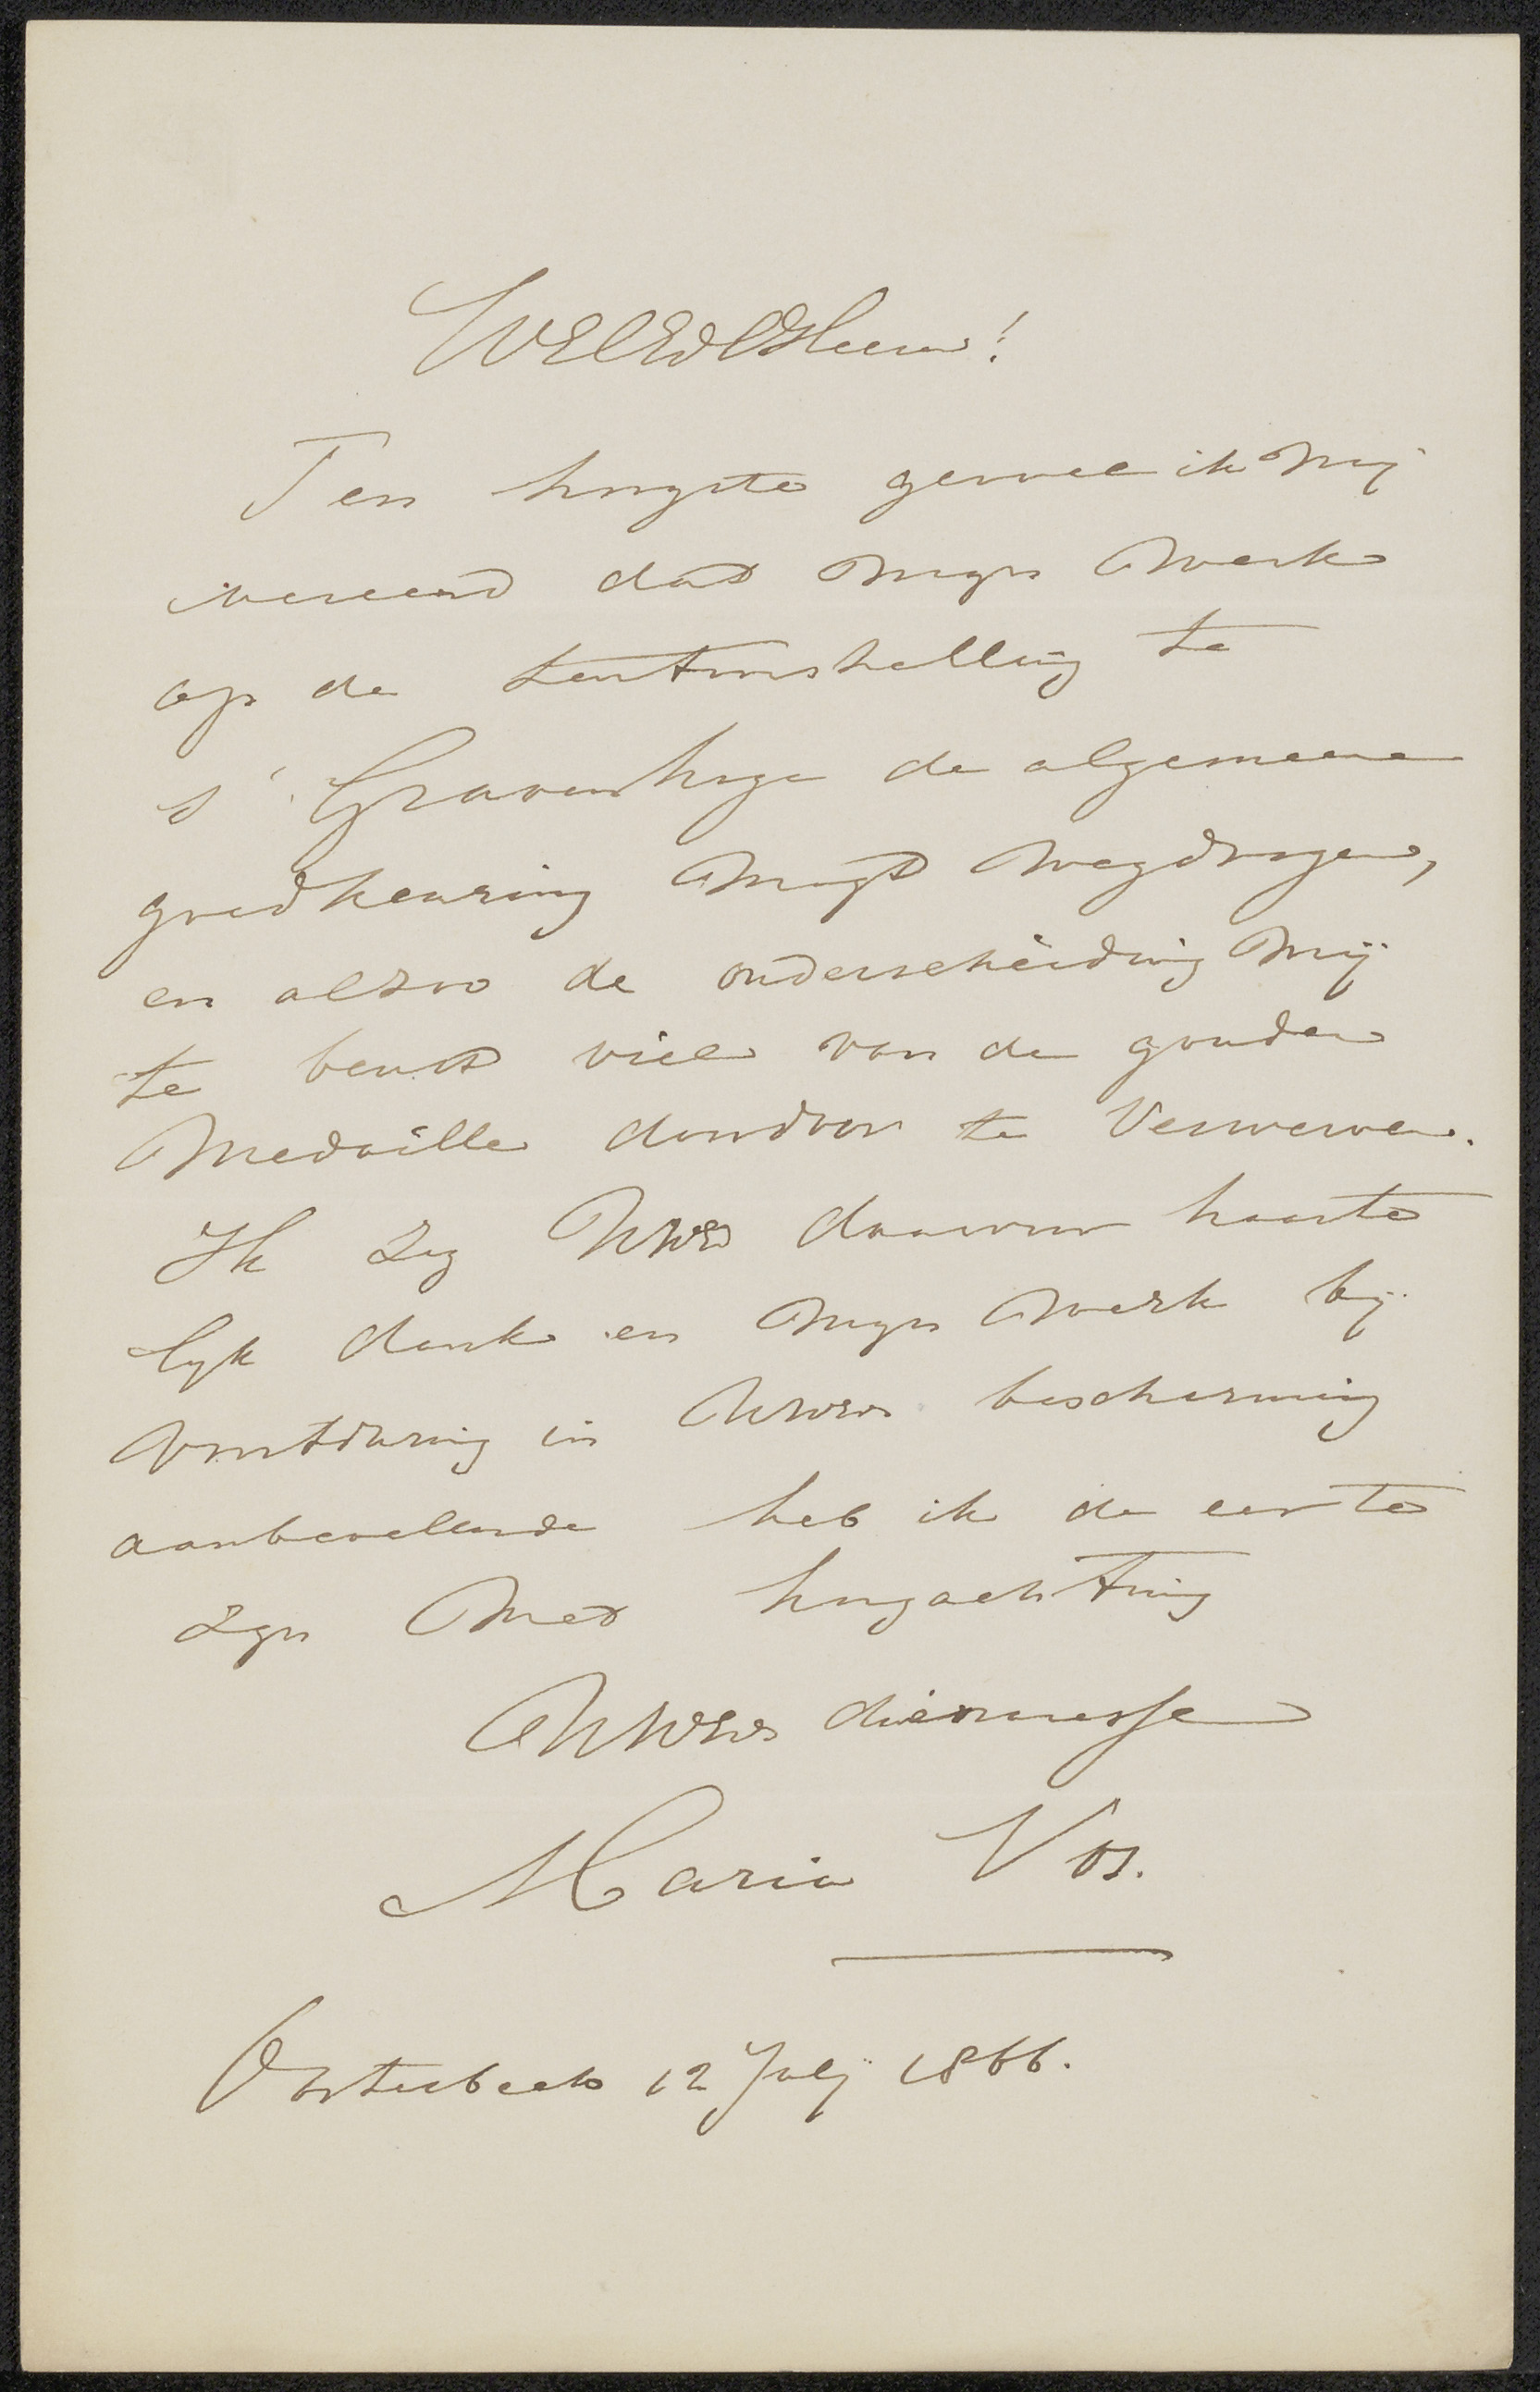 WelEdl Heer!
Ten hoogste gevoel ik mij
vereerd dat mijn werk
op de tentoonstelling te
s' Gravenhage de algemeene
goedkeuring mogt wegdragen,
en alzoo de onderscheiding mij
te beurt viel van de gouden
Medaille daardoor te Verwerven.
Ik zeg UWEd daarvoor harte
lyk dank en mijn werk bij
voortduring in UWEds bescherming
aanbevelende heb ik de eer te
zyn Met hoogachting
UWEds dienaresse
Maria Vos.
Oosterbeek 12 Julij 1866.